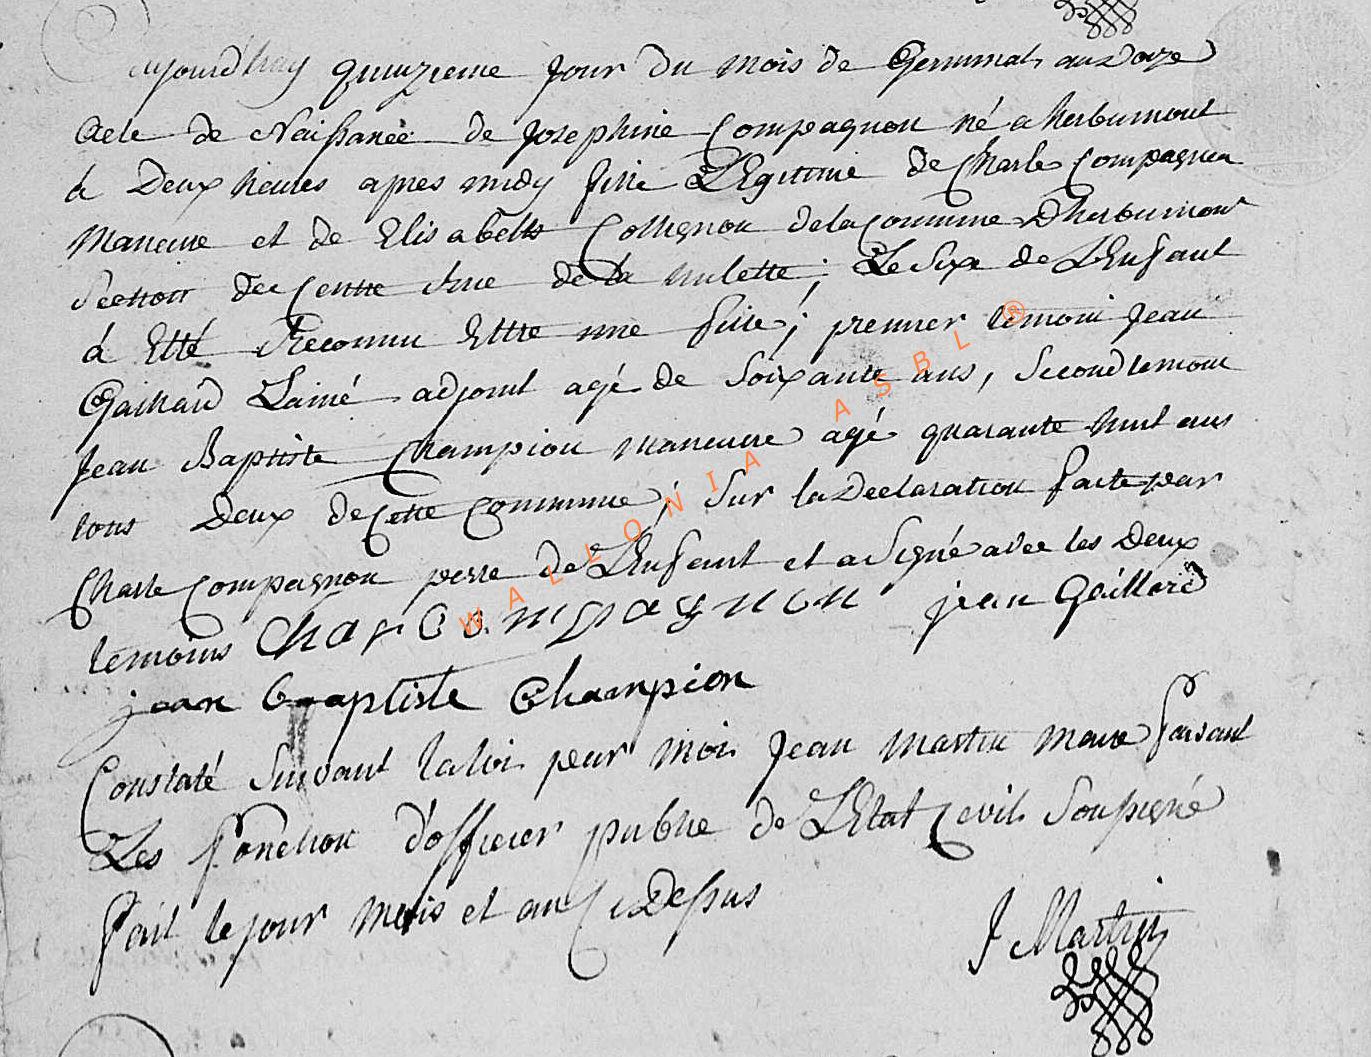 aujourd'huy quinzieme Jour du mois de Germinal an Douze
Acte de Naissance de Josephine Compagnon né a herbumont
à Deux heures apres midy fille Légitime de Charle Compagnon
Maneuvre et de Elisabeth Collignon de la Commune Dherbumont
Section de Cette Rue de la mulette; Le Sexe de L'Enfant
à Etté Reconnu Ettre une fille; premier temoin Jean
Gaillard Lainé adjoint agé de Soixante ans, Second temoin
Jean Baptiste Champion maneuvre agé quarante huit ans
tous Deux de Cette Commune; Sur la Declaration faite par
Charle Compagnon perre de L'Enfant et a Signé avec les Deux
temoins Char Compagnon jean Gaillard
jean baptiste Champion
Constaté Suivant la loi par moi Jean Martin maire faisant
Les fonction d'officier public de L'Etat Cevil Soussigné
fait le jour mois et an Ci Dessus
J Martin
WALLONIA ASBL ®